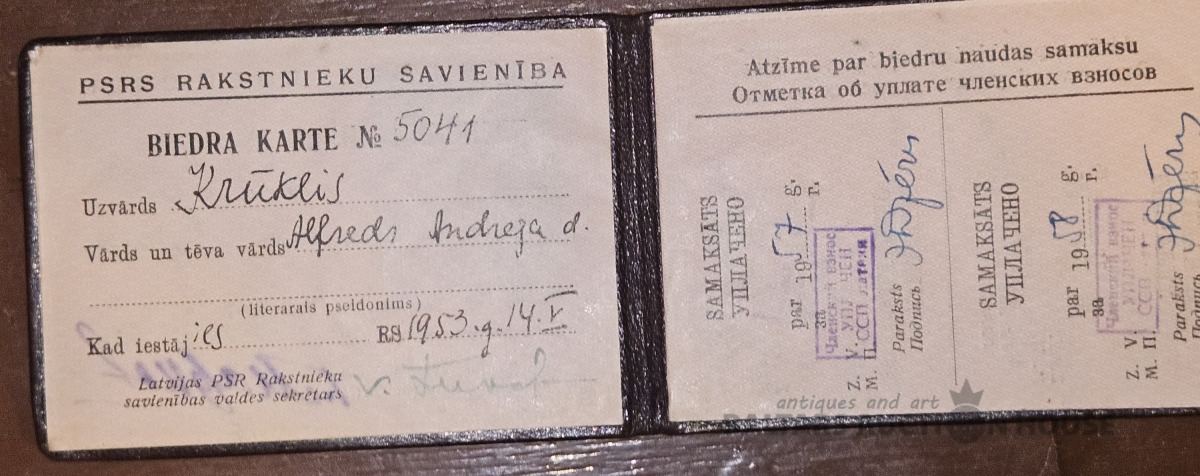 PSRS RAKSTNIEKU SAVIENĪBA
BIEDRA KARTE № 5041
Uzvārds Krūklis
Vārds un tēva vārds Alfreds Andreja d.
(literarais pseidonims)
Kad iestājies RS 1953.g. 14.V
Latvijas PSR Rakstnieku
savienības valdes sekretārs
Atzīme par biedru naudas samaksu
Отметка об уплате членских взносов
SAMAKSĀTS
УПЛАЧЕНО
par 1957 g.
за г.
Членский взнос
УПЛ ЧЕН
ССП Латвии
Z. V.
М. П.
Paraksts
Подпись
SAMAKSĀTS
УПЛАЧЕНО
par 1958 g.
за г.
Членский взнос
ССП
Z. V.
М. П.
Paraksts
Подпись
antiques and art
BALTARS AUCTION HOUSE